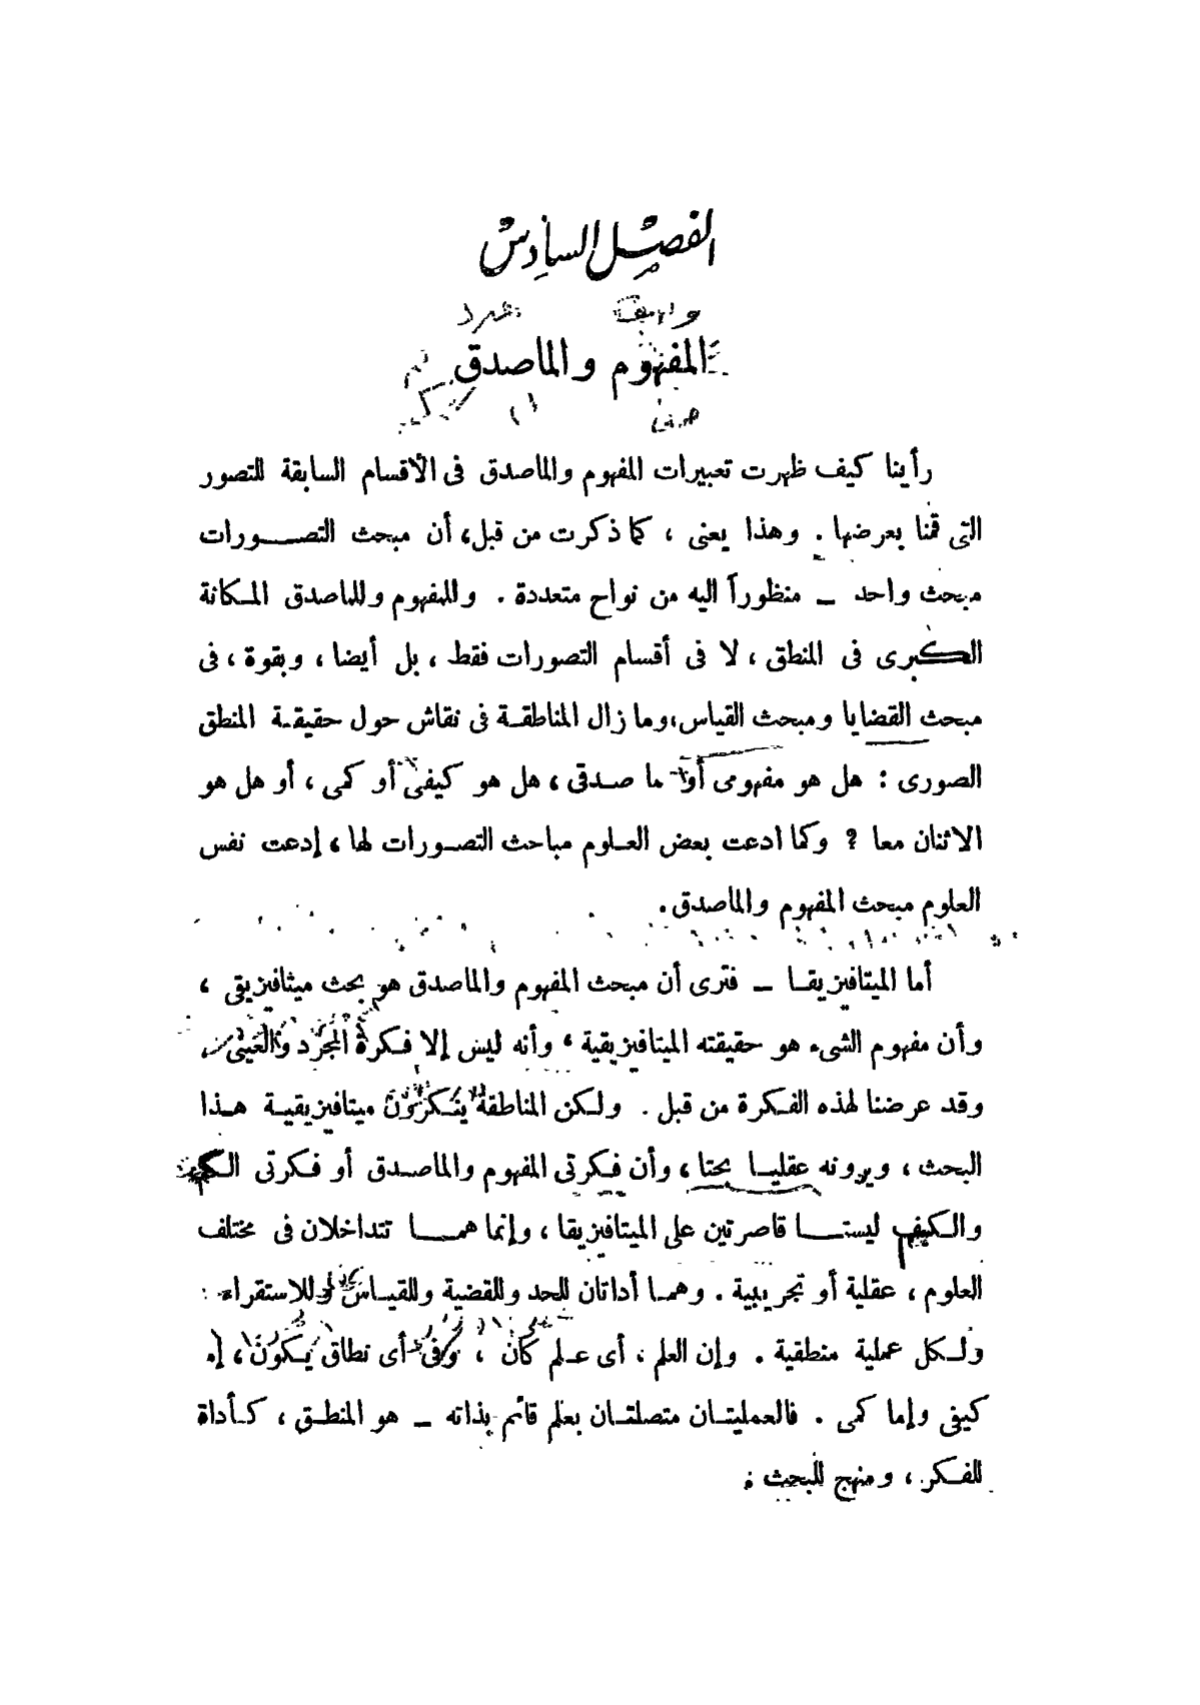 الفصل السادس
المفهوم والماصدق
رأينا كيف ظهرت تعبيرات المفهوم والماصدق فى الأقسام السابقة للتصور
التى قمنا بعرضها . وهذا يعنى ، كما ذكرت من قبل، أن مبحث التصورات
مبحث واحد – منظوراً اليه من نواح متعددة . وللمفهوم وللماصدق المكانة
الكبرى فى المنطق ، لا فى أقسام التصورات فقط ، بل أيضا ، وبقوة ، فى
مبحث القضايا ومبحث القياس، وما زال المناطقة فى نقاش حول حقيقة المنطق
الصورى : هل هو مفهومى أو ما صدقى ، هل هو كيفى أو كمى ، أو هل هو
الاثنان معا ؟ وكما ادعت بعض العلوم مباحث التصورات لها ، إدعت نفس
العلوم مبحث المفهوم والماصدق .
أما الميتافيزيقا – فترى أن مبحث المفهوم والماصدق هو بحث ميثافيزيقى ،
وأن مفهوم الشىء هو حقيقته الميتافيزيقية ، وأنه ليس إلا فكرة المجرد والعينى .
وقد عرضنا لهذه الفكرة من قبل . ولكن المناطقة ينكرون ميتافيزيقية هذا
البحث ، ويرونه عقليا بحتا ، وأن فكرتى المفهوم والماصدق أو فكرتى الكم
والكيف ليستا قاصرتين على الميتافيزيقا ، وإنما هما تتداخلان فى مختلف
العلوم ، عقلية أو تجريبية . وهما أداتان للحد وللقضية وللقياس وللاستقراء
ولكل عملية منطقية . وإن العلم ، أى علم كان ، وفى أى نطاق يكون ، إ.
كيفى وإما كمى . فالعمليتان متصلتان بعلم قائم بذاته – هو المنطق ، كأداة
للفكر ، ومنهج للبحث .